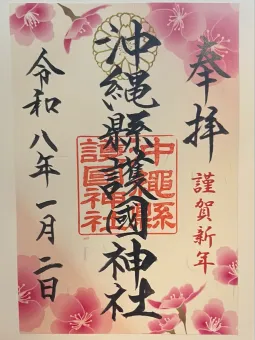 奉拝
謹賀新年
沖縄縣護國神社
沖縄縣護國神社
令和八年一月二日